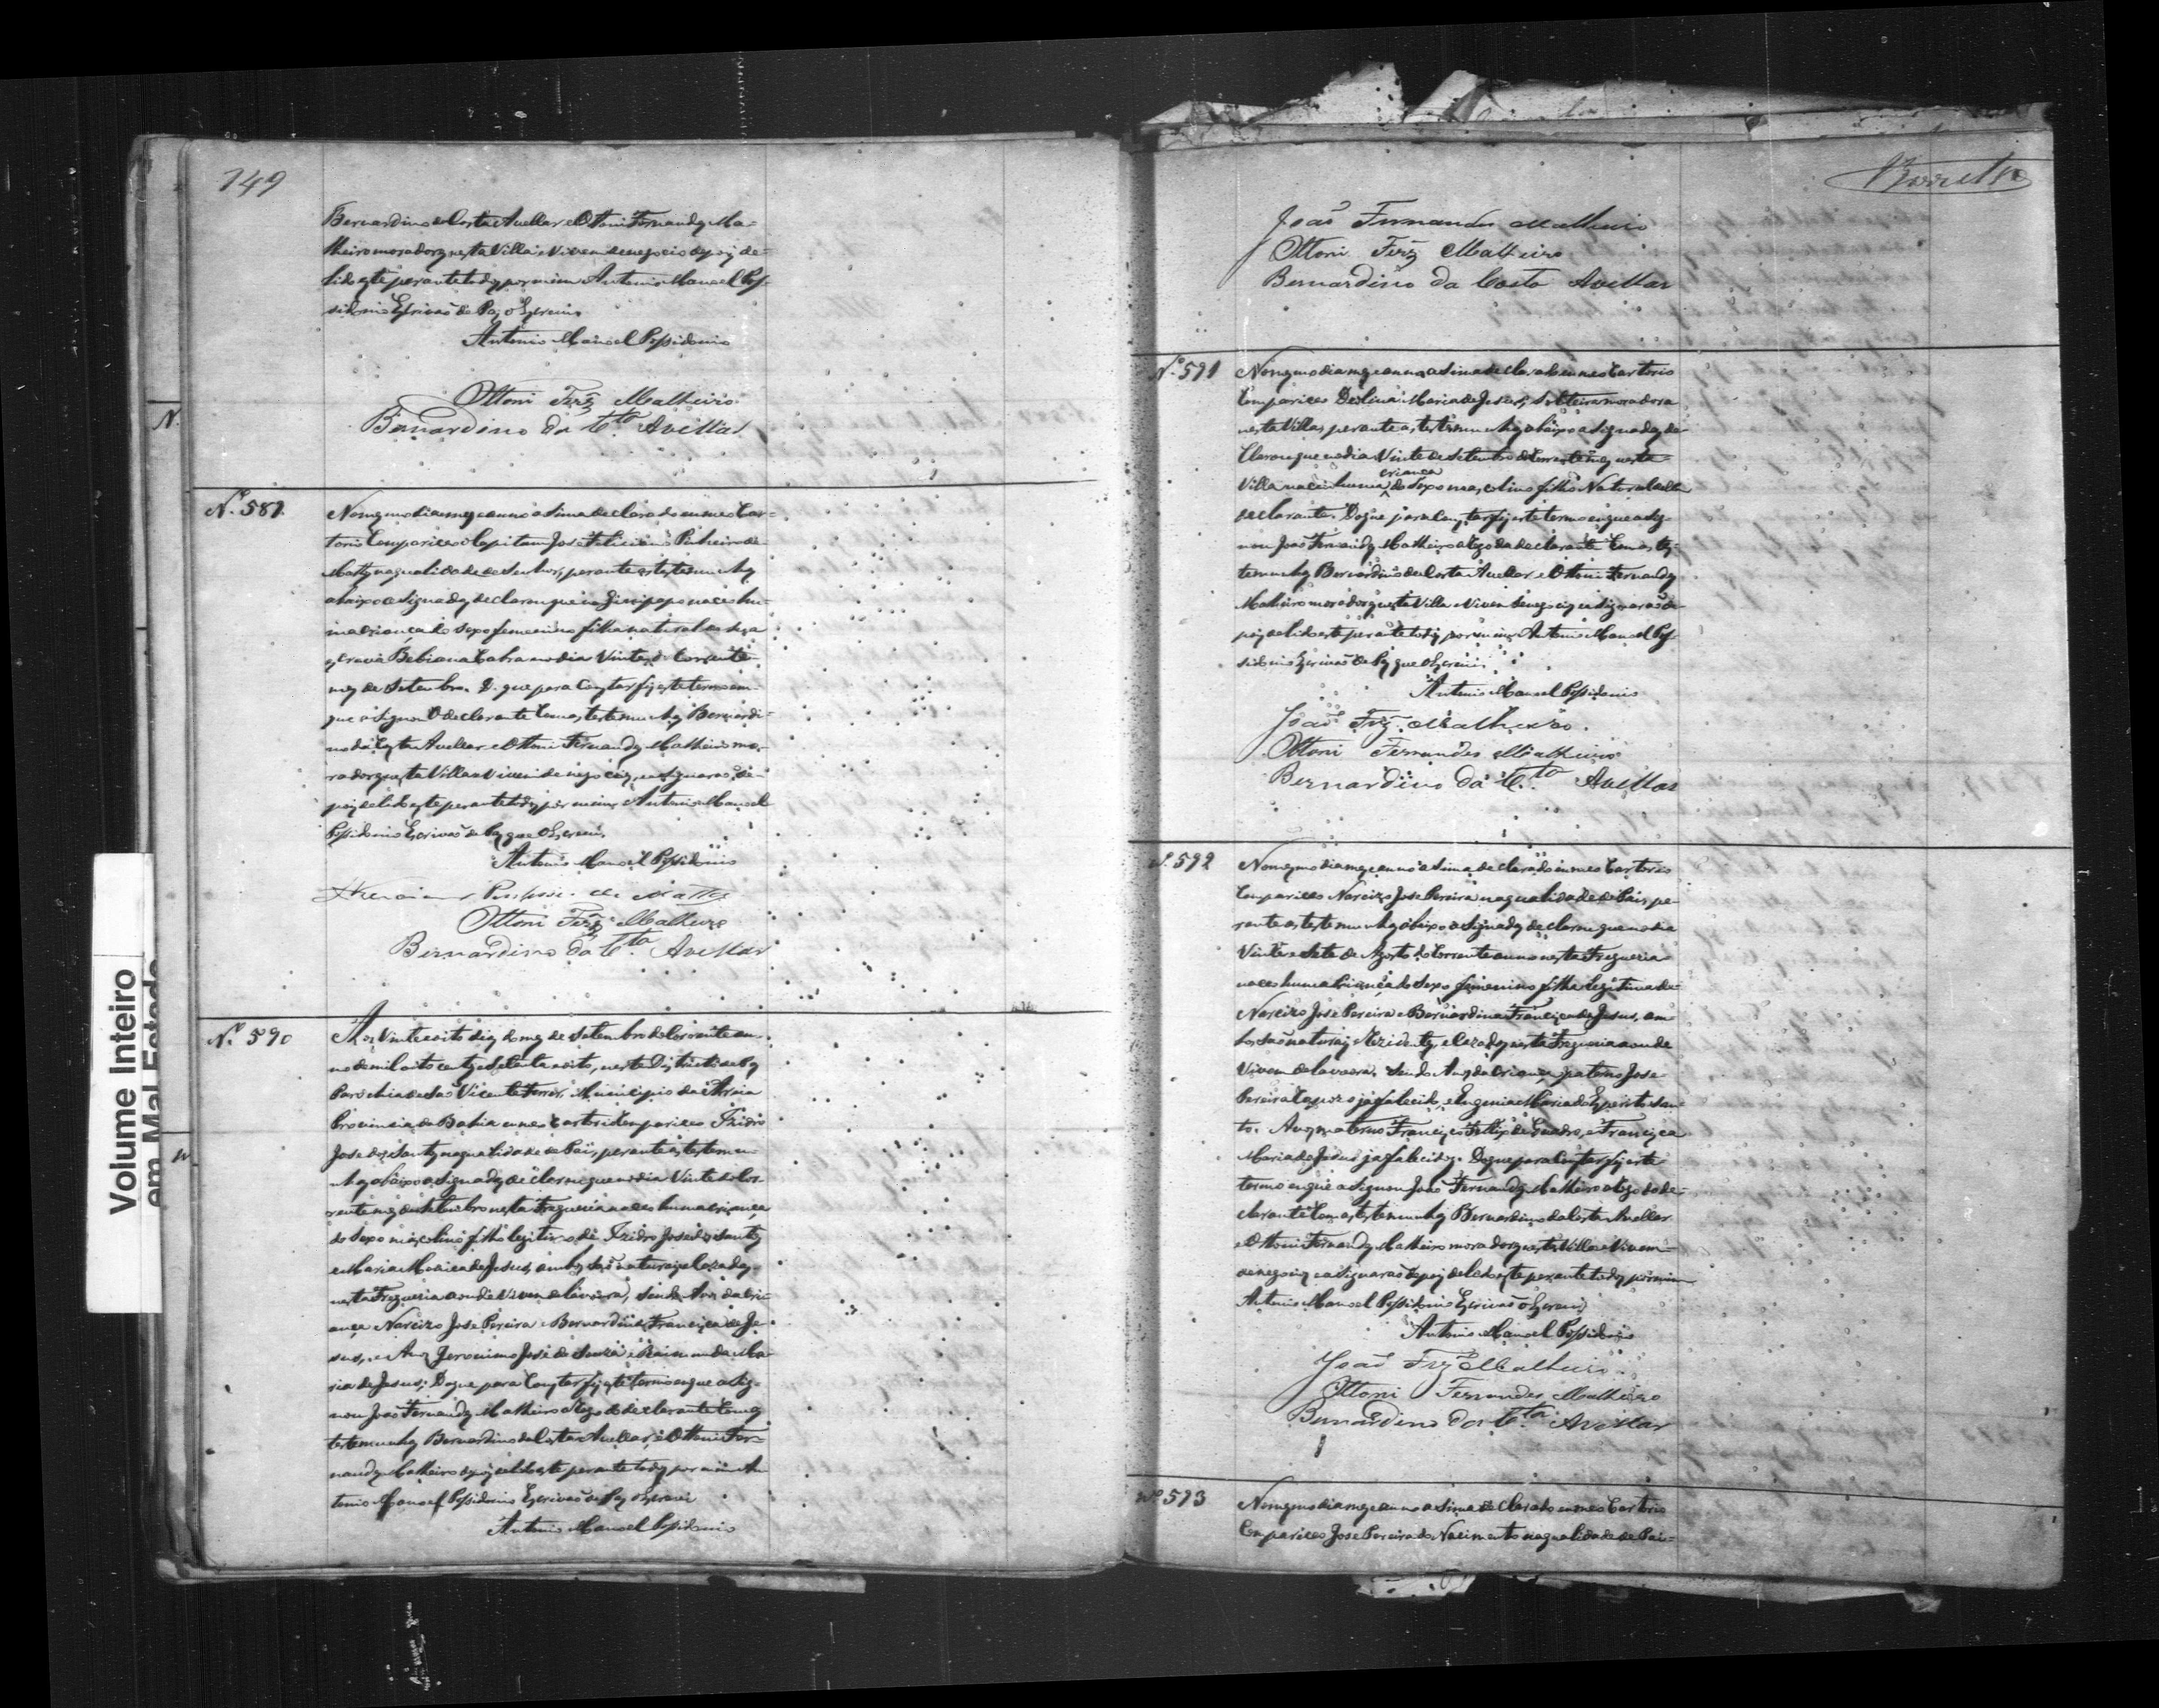 149
Bernardino da Costa Avellar e Ottoni Fernandes Ma-
lheiro moradores nesta Villa e Vivem de negocio depois de
lido este perante todos por mim Antonio Manoel Pos-
sidonio Escrivaõ de Paz o Escrevi
Antonio Manoel Possidonio
Ottoni Frz Malheiro
Bernardino da Cta Avellar
Nº 589
No mesmo dia mes e anno asima declarado em meo Car-
torio Compariceo o Capitam José Feliciano Pinheiro de
Mattos na qualidade de Senhor, perante as testemunhas
abaixo asignadas declarou que no Genipapo naceo hu-
ma criança do sexo femenino filha natural de sua
escrava Bebiana Cabra no dia Vinte do Corrente
mes de Setembro. D. que para Constar fis este termo em
que asignou O declarante Com as testemunhas Bernardi-
no da Costa Avellar e Ottoni Fernandes Malheiro mo-
radores nesta Villa e Vivem de negocios, e asignaraõ de-
pois de lido este perante todos por mim Antonio Manoel
Possidonio Escrivaõ de Paz que o Escrevi
Antonio Manoel Possidonio
de Mattos
Ottoni Frz Malheiro
Bernardino da Cta Avellar
Nº 590
Aos Vinte e oito dias do mes de Setembro do Corrente an-
no de mil oito centos e Setenta e oito, neste Districto de Paz
Parochia de Saõ Vicente Ferrer, Municipio da Areia
Provincia da Bahia em meo Cartorio Compariceo Izidro
Jose dos Santos na qualidade de Pai, perante as testemu-
nhas abaixo asignadas declarou que no dia Vinte do Cor-
rente mes de Setembro nesta Freguezia naceo huma criança
do Sexo masculino filho legitimo de Izidro Jose dos Santos
e Maria Monica de Jesus, ambos Saõ naturais e Cazados
nesta Freguezia aonde Vivem de lavoura, Sendo Avos da cri-
ança Narcizo Jose Pereira e Bernardina Francisca de Je-
sus, e Avos Jeronimo José de Souza e Raimunda Ma-
ria de Jesus; Do que para Constar fis este termo em que asig-
nou Joaõ Fernandes Malheiro a Rogo do declarante Com as
testemunhas Bernardino da Costa Avellar, e Ottoni Fer-
nandes Malheiro depois de lido este perante todos por mim An-
tonio Manoel Possidonio Escrivaõ de Paz o Escrevi
Antonio Manoel Possidonio
Joaõ Fernandes Malheiro
Ottoni Frz Malheiro
Bernardino da Costa Avellar
Nº 591
No mesmo dia mes e anno asima declarado em meo Cartorio
Compariceo Deolina Maria de Jesus, Solteira moradora
nesta Villa, perante as testemunhas abaixo asignadas de-
clarou que no dia Vinte de Setembro do Corrente mes nesta
Villa naceo huma criança do Sexo masculino filho Natural della
declarante. Do que para Constar fis este termo em que asig-
nou Joaõ Fernandes Malheiro a Rogo da declarante Com as tes-
temunhas Bernardino da Costa Avellar e Ottoni Fernandes
Malheiro moradores nesta Villa e Vivem de negocios e asignaraõ de-
pois de lido este perante todos por mim Antonio Manoel Pos-
sidonio Escrivaõ de Paz que o Escrevi
Antonio Manoel Possidonio
Joaõ Frz Malheiro.
Ottoni Fernandes Malheiro
Bernardino da Cta Avellar
Nº 592
No mesmo dia mes e anno asima declarado em meo Cartorio
Compariceo Narcizo Jose Pereira na qualidade de Pai, pe-
rante as testemunhas abaixo asignadas declarou que no dia
Vinte e Sete de Agosto do Corrente anno nesta Freguezia
naceo huma Criança do Sexo femenino filha legitima de
Narcizo José Pereira e Bernardina Francisca de Jesus, am-
bos saõ naturais Rezidentes e Cazados nesta Freguezia aonde
Vivem de lavoura. Sendo Avos da criança paternos Jose
Pereira Caposo já falecido, e Eugenia Maria do Espirito San-
to. Avos maternos Francisco Felix de Guedes, e Francisca
Maria de Jesus ja falecidos. Do que para Constar fis este
termo em que asignou Joaõ Fernandes Malheiro a Rogo do de-
clarante Com as testemunhas Bernardino da Costa Avellar
e Ottoni Fernandes Malheiro moradores nesta Villa e Vivem
de negocios e asignaraõ depois de lido este perante todos por mim
Antonio Manoel Possidonio Escrivaõ o Escrevi
Antonio Manoel Possidonio
Joaõ Frz Malheiro.
Ottoni Fernandes Malheiro
Bernardino da Cta Avellar
Nº 593
No mesmo dia mes e anno asima declarado em meo Cartorio
Compariceo Jose Pereira do Nacimento na qualidade de Pai
Volume Inteiro
em Mal Estado